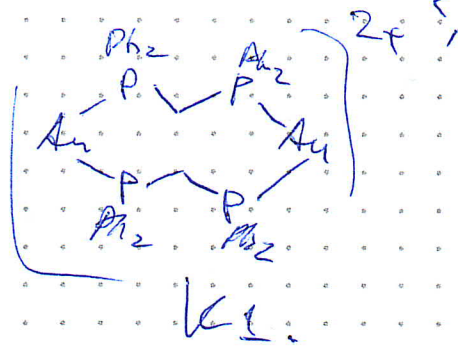 2+ ,
Ph2 Ph2
P P
Au Au
P P
Ph2 Ph2
K1.